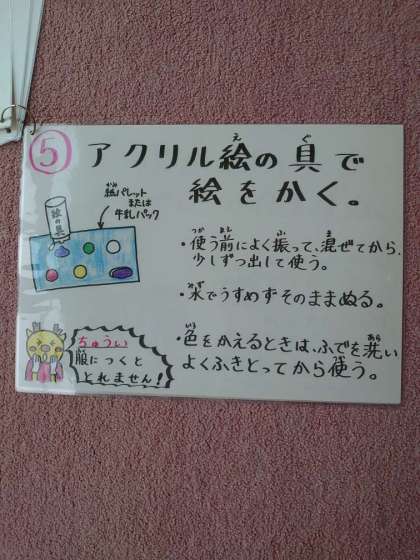 ⑤ アクリル絵の具で
絵をかく。
紙パレット
または
牛乳パック
絵の具
・使う前によく振って、混ぜてから、
少しずつ出して使う。
・水でうすめずそのままぬる。
・色をかえるときは、ふでを洗い
よくふきとってから使う。
ちゅうい
服につくと
とれません!